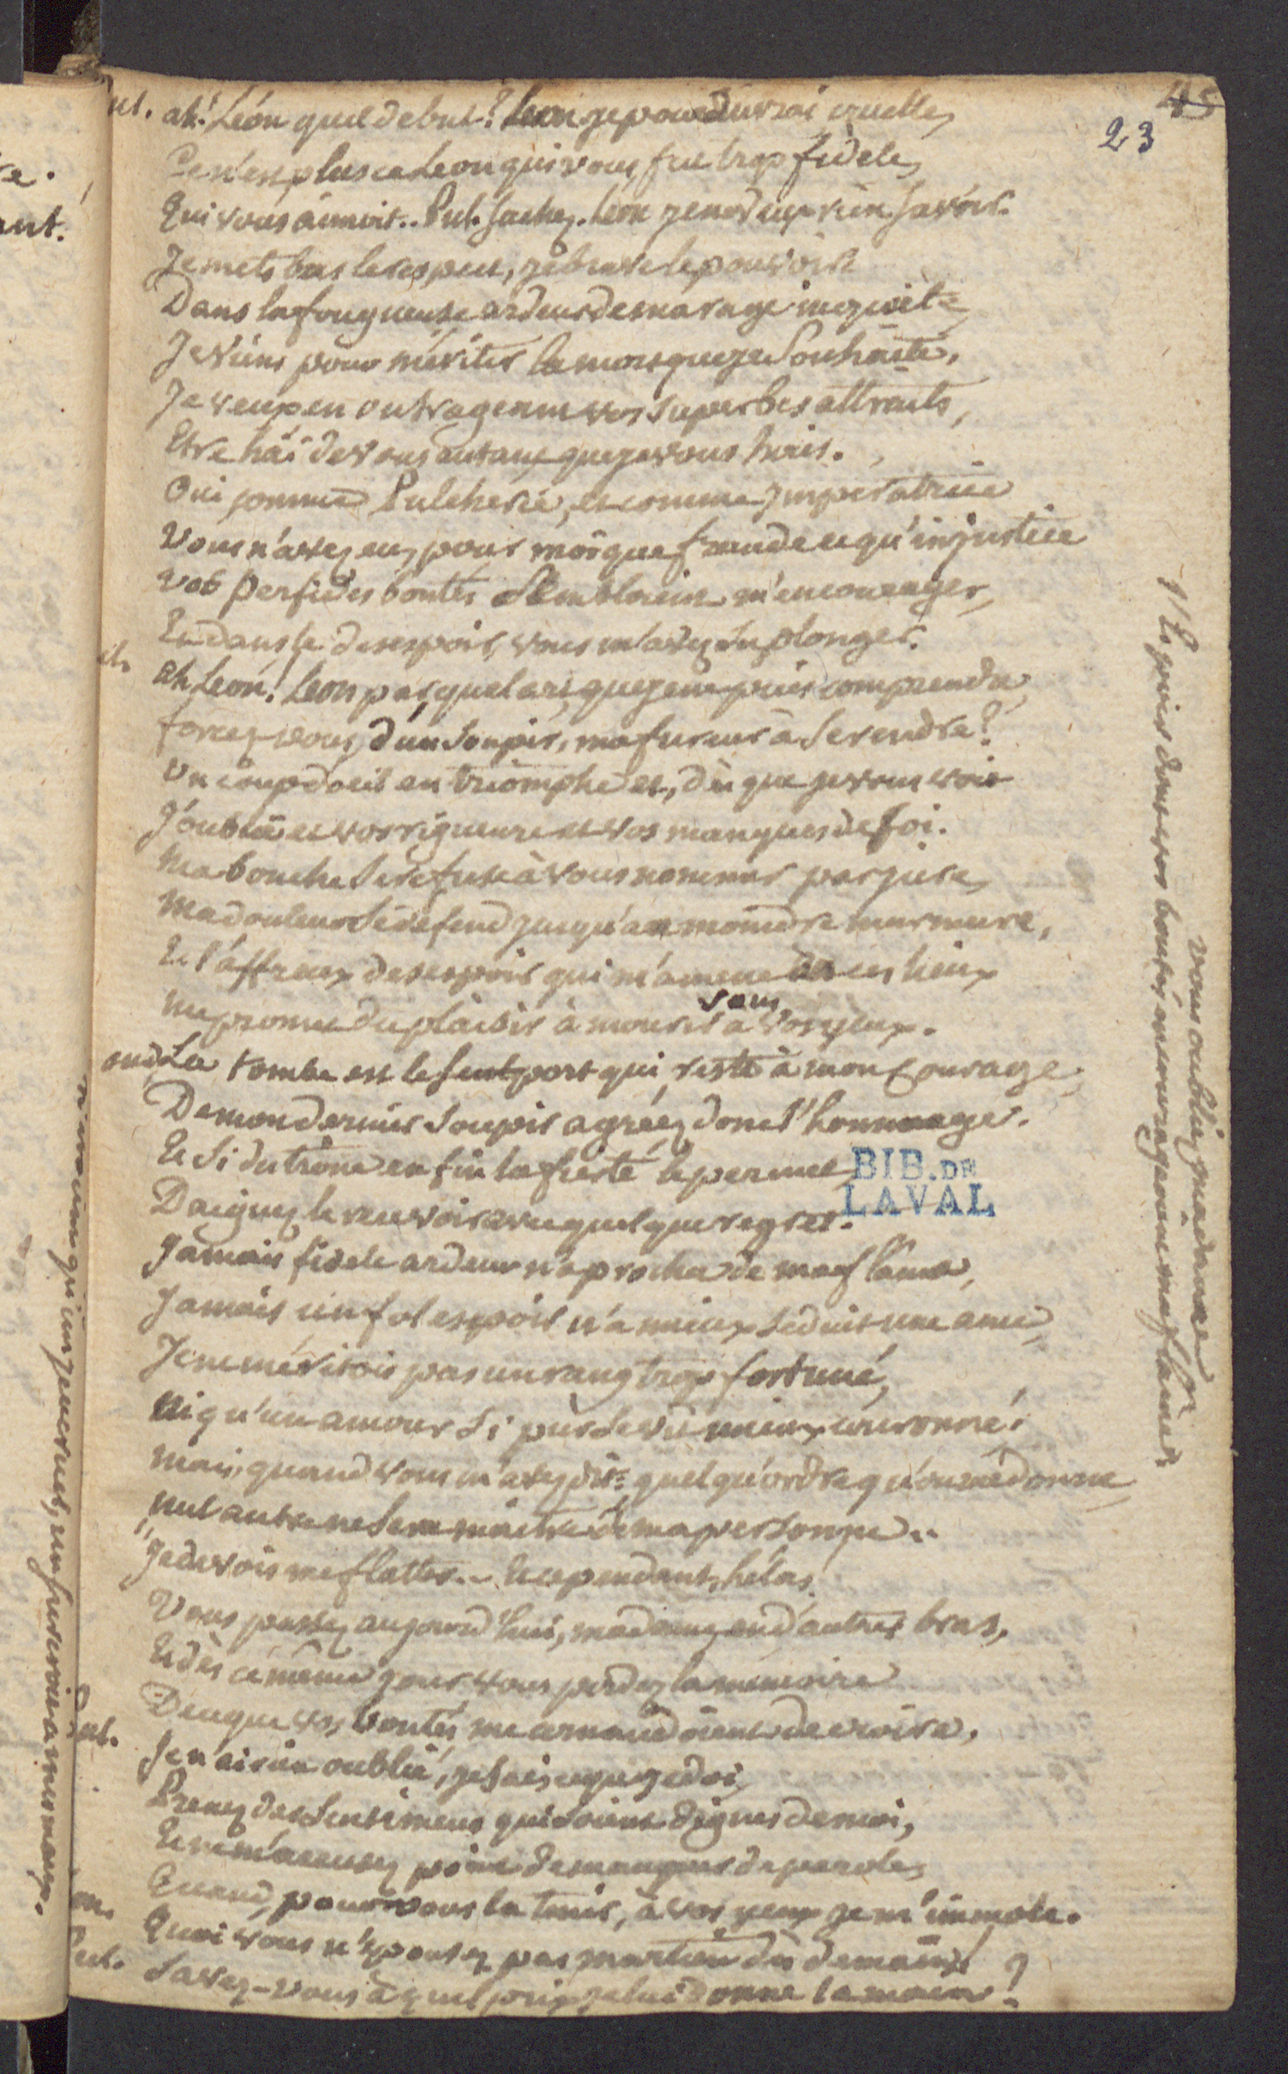 45
23
Pul. ah! Léon quel debut? Leon je poursuivrai cruelle,
Ce n'est plus ce Leon qui vous fut trop fidele,
Qui vous aimoit.. Pul. sachez. Leon je ne veux rien savoir.
Je mets bas le respect, je brave le pouvoir
Dans la fougueuse ardeur de ma rage inquiete
Je viens pour mériter la mort que je souhaite,
Je veux en outrageant vos superbes attraits,
Etre haï de vous autant que je vous hais.
Oui comme Pulcherie, et comme Imperatrice
Vous n'avez eu, pour moi que fraude et qu'injustice
Vos perfides bontés sembloient m'encourager,
Et dans le desespoir, vous m'avez su plonger.
ah Leon! Leon par, quel art, que je ne puis comprendre
forcez-vous, d'un soupir, ma fureur à se rendre?
Un coup d'oeil en triomphe et, dès que je vous voi
J'oublie et vos rigueurs et vos manques de foi.
Ma bouche se refuse à vous nommer parjure,
Ma douleur se défend jusqu'au moindre murmure,
Et l'affreux desespoir qui m'amene en ces lieux
Me promet du plaisir à mourir sous vos yeux.
La tombe est le seul port qui reste à mon courage,
De mon dernier soupir agréez donc l'hommage.
Et si du trône enfin la fierté le permet
Daignez le recevoir avec quelque regret.
BIB. DE
LAVAL
Jamais fidele ardeur n'aprocha de ma flame,
Jamais un fol espoir n'a mieux seduit une ame,
Je ne méritois pas un rang trop fortuné,
Ni qu'un amour si pur se vit mieux couronné!
Mais, quand vous m'avez dit: quelqu'ordre qu'on me donne
nul autre ne sera maitre de ma personne..
Je devois me flatter.. Et cependant, hélas,
Vous passez aujourd'hui, madame, en d'autres bras,
Et dès ce même jour vous perdez la mémoire
De ce que vos bontés me commandoient de croire.
Pul. Je n'ai rien oublié, je sais ce que je doi,
Prenez des sentimens qui soient dignes de moi,
Et ne m'accusez point de manquer de parole,
Quand, pour vous la tenir, à vos yeux je m'immole.
Quoi vous n'épousez pas martian dès demain?
Pul. Savez-vous à quel prix je lui donne la main?
Et puis dans vos bontés encourageoient ma flame
vous oubliez, madame